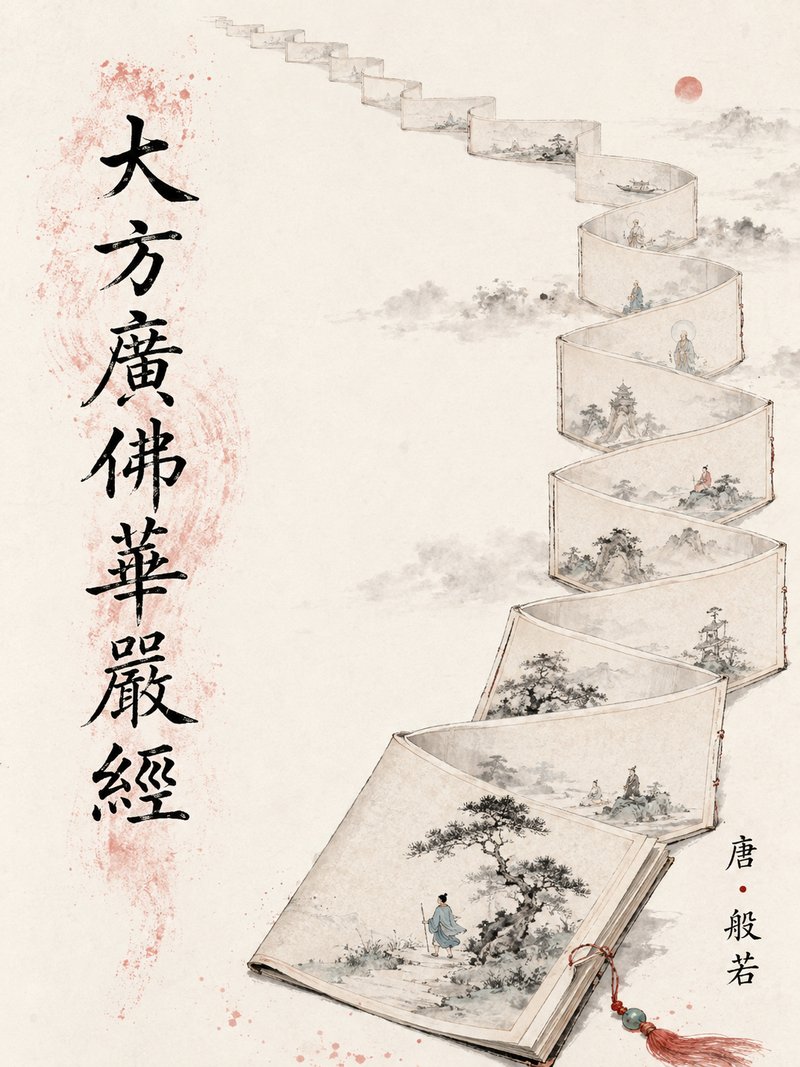 大方廣佛華嚴經
唐·般若